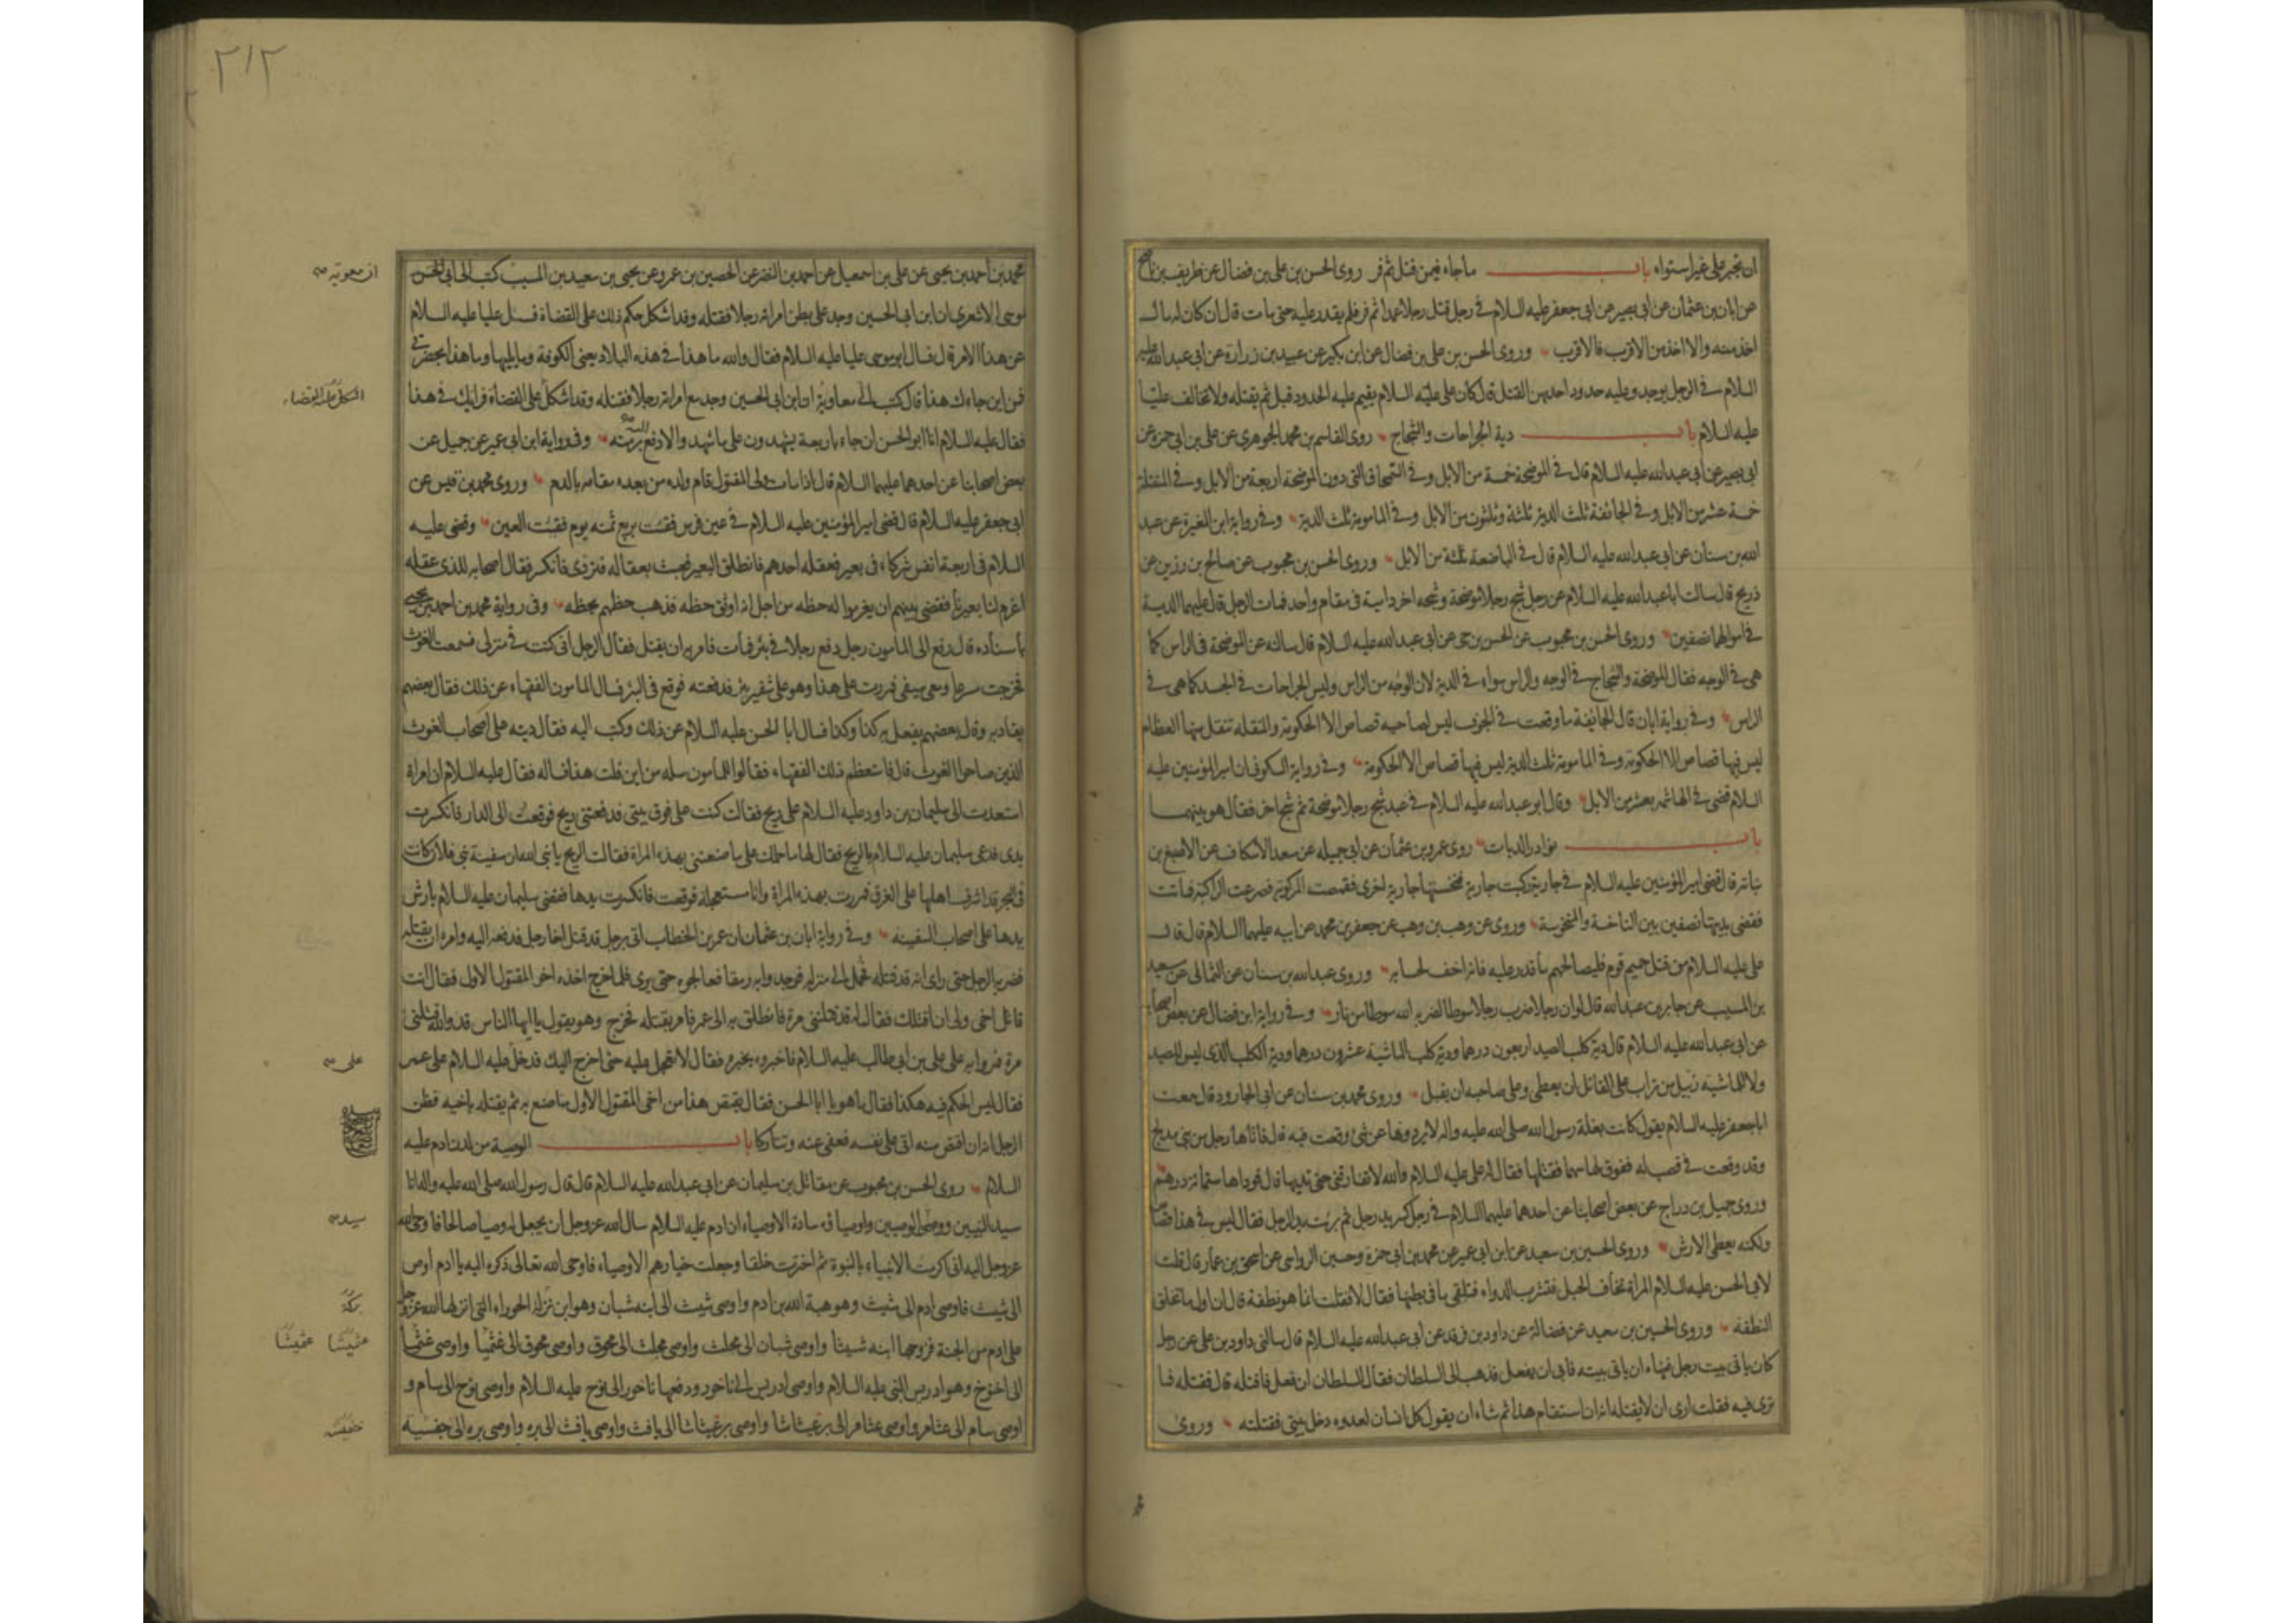 ان تجبر على غير استواء باب ما جاء فيمن قتل ثم فر روى الحسن بن على بن فضال عن ظريف بن ناصح
عن ابان بن عثمان عن ابى بصير عن ابى جعفر عليه السلام فى رجل قتل رجلا عمدا ثم فر فلم يقدر عليه حتى مات قال ان كان له مال
اخذ منه والا اخذ من الاقرب فالاقرب وروى الحسن بن على بن فضال عن ابن بكير عن عبيد بن زرارة عن ابى عبد الله عليه
السلام فى الرجل يوجد وعليه حدود احدهن القتل قال كان على عليه السلام يقيم عليه الحدود قبل ثم يقتله ولا تخالف عليا
عليه السلام باب دية الجراحات والشجاج روى القاسم بن محمد الجوهرى عن على بن ابى حمزة عن
ابى بصير عن ابى عبد الله عليه السلام قال فى الموضحة خمسة من الابل وفى السمحاق التى دون الموضحة اربعة من الابل وفى المنقلة
خمسة عشر من الابل وفى الجائفة ثلث الدية ثلثة وثلثون من الابل وفى المامومة ثلث الدية وفى رواية ابن المغيرة عن عبد
الله بن سنان عن ابى عبد الله عليه السلام قال فى الباضعة ثلثة من الابل وروى الحسن بن محبوب عن صالح بن رزين عن
ذريح قال سالت ابا عبد الله عليه السلام عن رجل شج رجلا موضحة وشجه اخر دامية فى مقام واحد فمات الرجل قال عليهما الدية
فى اموالهما نصفين وروى الحسن بن محبوب عن الحسن بن حى عن ابى عبد الله عليه السلام قال سالته عن الموضحة فى الراس كما
هى فى الوجه فقال الموضحة والشجاج فى الوجه والراس سواء فى الدية لان الوجه من الراس وليس الجراحات فى الجسد كما هى فى
الراس وفى رواية ابان قال الجائفة ما وقعت فى الجوف ليس لصاحبه قصاص الا الحكومة والمنقلة تنقل منها العظام
ليس فيها قصاص الا الحكومة وفى المامومة ثلث الدية ليس فيها قصاص الا الحكومة وفى رواية السكونى ان امير المؤمنين عليه
السلام قضى فى الهاشمه بعشر من الابل وقال ابو عبد الله عليه السلام فى عبد شج رجلا موضحة ثم شج اخر فقال هو بينهما
باب نوادر الديات روى عمرو بن عثمان عن ابى جميله عن سعد الاسكاف عن الاصبغ بن
نباتة قال قضى امير المؤمنين عليه السلام فى جارية ركبت جارية فنخستها جارية اخرى فقمصت المركوبة فصرعت الراكبة فماتت
فقضى بديتها نصفين بين الناخسة والمنخوسة وروى عن وهب بن وهب عن جعفر بن محمد عن ابيه عليهما السلام قال قال
على عليه السلام من قتل حميم قوم فليصالحهم ما قدر عليه فانه اخف لحسابه وروى عبد الله بن سنان عن الثمالى عن سعيد
بن المسيب عن جابر بن عبد الله قال لو ان رجلا ضرب رجلا سوطا لضربه الله سوطا من نار وفى رواية ابن فضال عن بعض اصحابه
عن ابى عبد الله عليه السلام قال دية كلب الصيد اربعون درهما ودية كلب الماشية عشرون درهما ودية الكلب الذى ليس للصيد
ولا للماشية زبيل من تراب على القاتل ان يعطى وعلى صاحبه ان يقبل وروى محمد بن سنان عن ابى الجارود قال سمعت
ابا جعفر عليه السلام يقول كانت بغلة رسول الله صلى الله عليه واله لا يردوها عن شئ وقعت فيه قال فاتاها رجل من بنى مدلج
وقد وقعت فى قصب له ففوق لها سهما فقتلها فقال له على عليه السلام والله لا تفارقنى حتى تديها قال فوداها ستمائة درهم
وروى جميل بن دراج عن بعض اصحابنا عن احدهما عليهما السلام فى رجل كسر يد رجل ثم برئت يد الرجل فقال ليس فى هذا قصاص
ولكنه يعطى الارش وروى الحسين بن سعيد عن ابن ابى عمير عن محمد بن ابى حمزة وحسين الرواسى عن اسحق بن عمار قال قلت
لابى الحسن عليه السلام المراة تخاف الحبل فتشرب الدواء فتلقى ما فى بطنها فقال لا فقلت انما هو نطفة قال ان اول ما تخلق
النطفة وروى الحسين بن سعيد عن فضالة عن داود بن فرقد عن ابى عبد الله عليه السلام قال سالنى داود بن على عن رجل
كان ياتى بيت رجل فنهاه ان ياتى بيته فابى ان يفعل فذهب الى السلطان فقال السلطان ان فعل فاقتله قال فقتله فما
ترى فيه فقلت ارى ان لا يقتله انه ان استقام هذا ثم شاء ان يقول كل انسان لعدوه دخل بيتى فقتلته وروى
٢١٢
محمد بن احمد بن يحيى عن على بن اسمعيل عن احمد بن النضر عن الحصين بن عمرو عن يحيى بن سعيد بن المسيب كتب الى ابى الحسن
ان معوية
موسى الاشعرى ان ابن ابى الحسين وجد على بطن امراته رجلا فقتله وقد اشكل حكم ذلك على القضاة فسل عليا عليه السلام
عن هذا الامر قال فسال ابو موسى عليا عليه السلام فقال والله ما هذا فى هذه البلاد يعنى الكوفة وما يليها وما هذا بحضرتى
فمن اين جاءك هذا قال كتب الى معاوية ان ابن ابى الحسين وجد مع امراته رجلا فقتله وقد اشكل على القضاة فرايك فى هذا
فقال عليه السلام انا ابو الحسن ان جاء باربعة يشهدون على ما شهد والا دفع برمته وفى رواية ابن ابى عمير عن جميل عن
بعض اصحابنا عن احدهما عليهما السلام قال اذا مات ولى المقتول قام ولده من بعده مقامه بالدم وروى محمد بن قيس عن
ابى جعفر عليه السلام قال قضى امير المؤمنين عليه السلام فى عين فرس فقئت بربع ثمنه يوم فقئت العين وقضى عليه
السلام فى اربعة انفس شركاء فى بعير فعقله احدهم فانطلق البعير فعبث بعقاله فتردى فانكسر فقال اصحابه للذى عقله
اغرم لنا بعيرنا فقضى بينهم ان يغرموا له حظه من اجل انه اوثق حظه فذهب حظهم بحظه وفى رواية محمد بن احمد بن يحيى
باسناده قال رفع الى المامون رجل دفع رجلا فى بئر فمات فامر به ان يقتل فقال الرجل انى كنت فى منزلى فسمعت الغوث
فخرجت مسرعا ومعى سيفى فمررت على هذا وهو على شفير بئر فدفعته فوقع فى البئر فسال المامون الفقهاء عن ذلك فقال بعضهم
يقاد به وقال بعضهم يفعل به كذا وكذا فسال ابا الحسن عليه السلام عن ذلك وكتب اليه فقال ديته على اصحاب الغوث
الذين صاحوا الغوث قال فاستعظم ذلك الفقهاء فقالوا للمامون سله من اين قلت هذا فساله فقال عليه السلام ان امراة
استعدت الى سليمان بن داود عليه السلام على ريح فقالت كنت على فوق بيتى فدفعتنى ريح فوقعت الى الدار فانكسرت
يدى فدعى سليمان عليه السلام بالريح فقال لها ما حملك على ما صنعتى بهذه المراة فقالت الريح يا نبى الله ان سفينة بنى فلان كانت
فى البحر قد اشرف اهلها على الغرق فمررت بهذه المراة وانا مستعجلة فوقعت فانكسرت يدها فقضى سليمان عليه السلام بارش
يدها على اصحاب السفينة وفى رواية ابان بن عثمان ان عمر بن الخطاب اتى برجل قد قتل اخا رجل فدفعه اليه وامره ان يقتله
فضربه الرجل حتى راى انه قد قتله فحمل الى منزله فوجد وابه رمقا فعالجوه حتى برى فلما خرج اخذه اخو المقتول الاول فقال انت
قاتل اخى ولى ان اقتلك فقال له قد قتلتنى مرة فانطلق به الى عمر فامر بقتله فخرج وهو يقول يا ايها الناس قد والله قتلنى
مرة فمروا به على على بن ابى طالب عليه السلام فاخبروه بخبره فقال لا تعجل عليه حتى اخرج اليك فدخل عليه السلام على عمر
على
فقال ليس الحكم فيه هكذا فقال ما هو يا ابا الحسن فقال يقتص هذا من اخى المقتول الاول ما صنع به ثم يقتله باخيه فظن
الرجل انه ان اقتص منه اتى على نفسه فعفى عنه وتتاركا باب الوصية من لدن ادم عليه
السلام روى الحسن بن محبوب عن مقاتل بن سليمان عن ابى عبد الله عليه السلام قال قال رسول الله صلى الله عليه واله انا
سيد النبيين ووصى الوصيين واوصياؤه سادة الاوصياء ان ادم عليه السلام سال الله عز وجل ان يجعل له وصيا صالحا فاوحى الله
سيد
عز وجل اليه انى اكرمت الانبياء بالنبوة ثم اخترت خلقا وجعلت خيارهم الاوصياء فاوحى الله تعالى ذكره اليه يا ادم اوص
الى شيث فاوصى ادم الى شيث وهو هبة الله بن ادم واوصى شيث الى ابنه شبان وهو ابن نزلة الحوراء التى انزلها الله عز وجل
على ادم من الجنة فزوجها ابنه شيثا واوصى شبان الى محلث واوصى محلث الى محوق واوصى محوق الى غثميا واوصى غثميا
عثميشا
الى اخنوخ وهو ادريس النبى عليه السلام واوصى ادريس الى ناخور ودفعها ناخور الى نوح عليه السلام واوصى نوح الى سام و
اوصى سام الى عثامر واوصى عثامر الى برغيثاشا واوصى برغيثاشا الى يافث واوصى يافث الى بره واوصى بره الى جفسيه